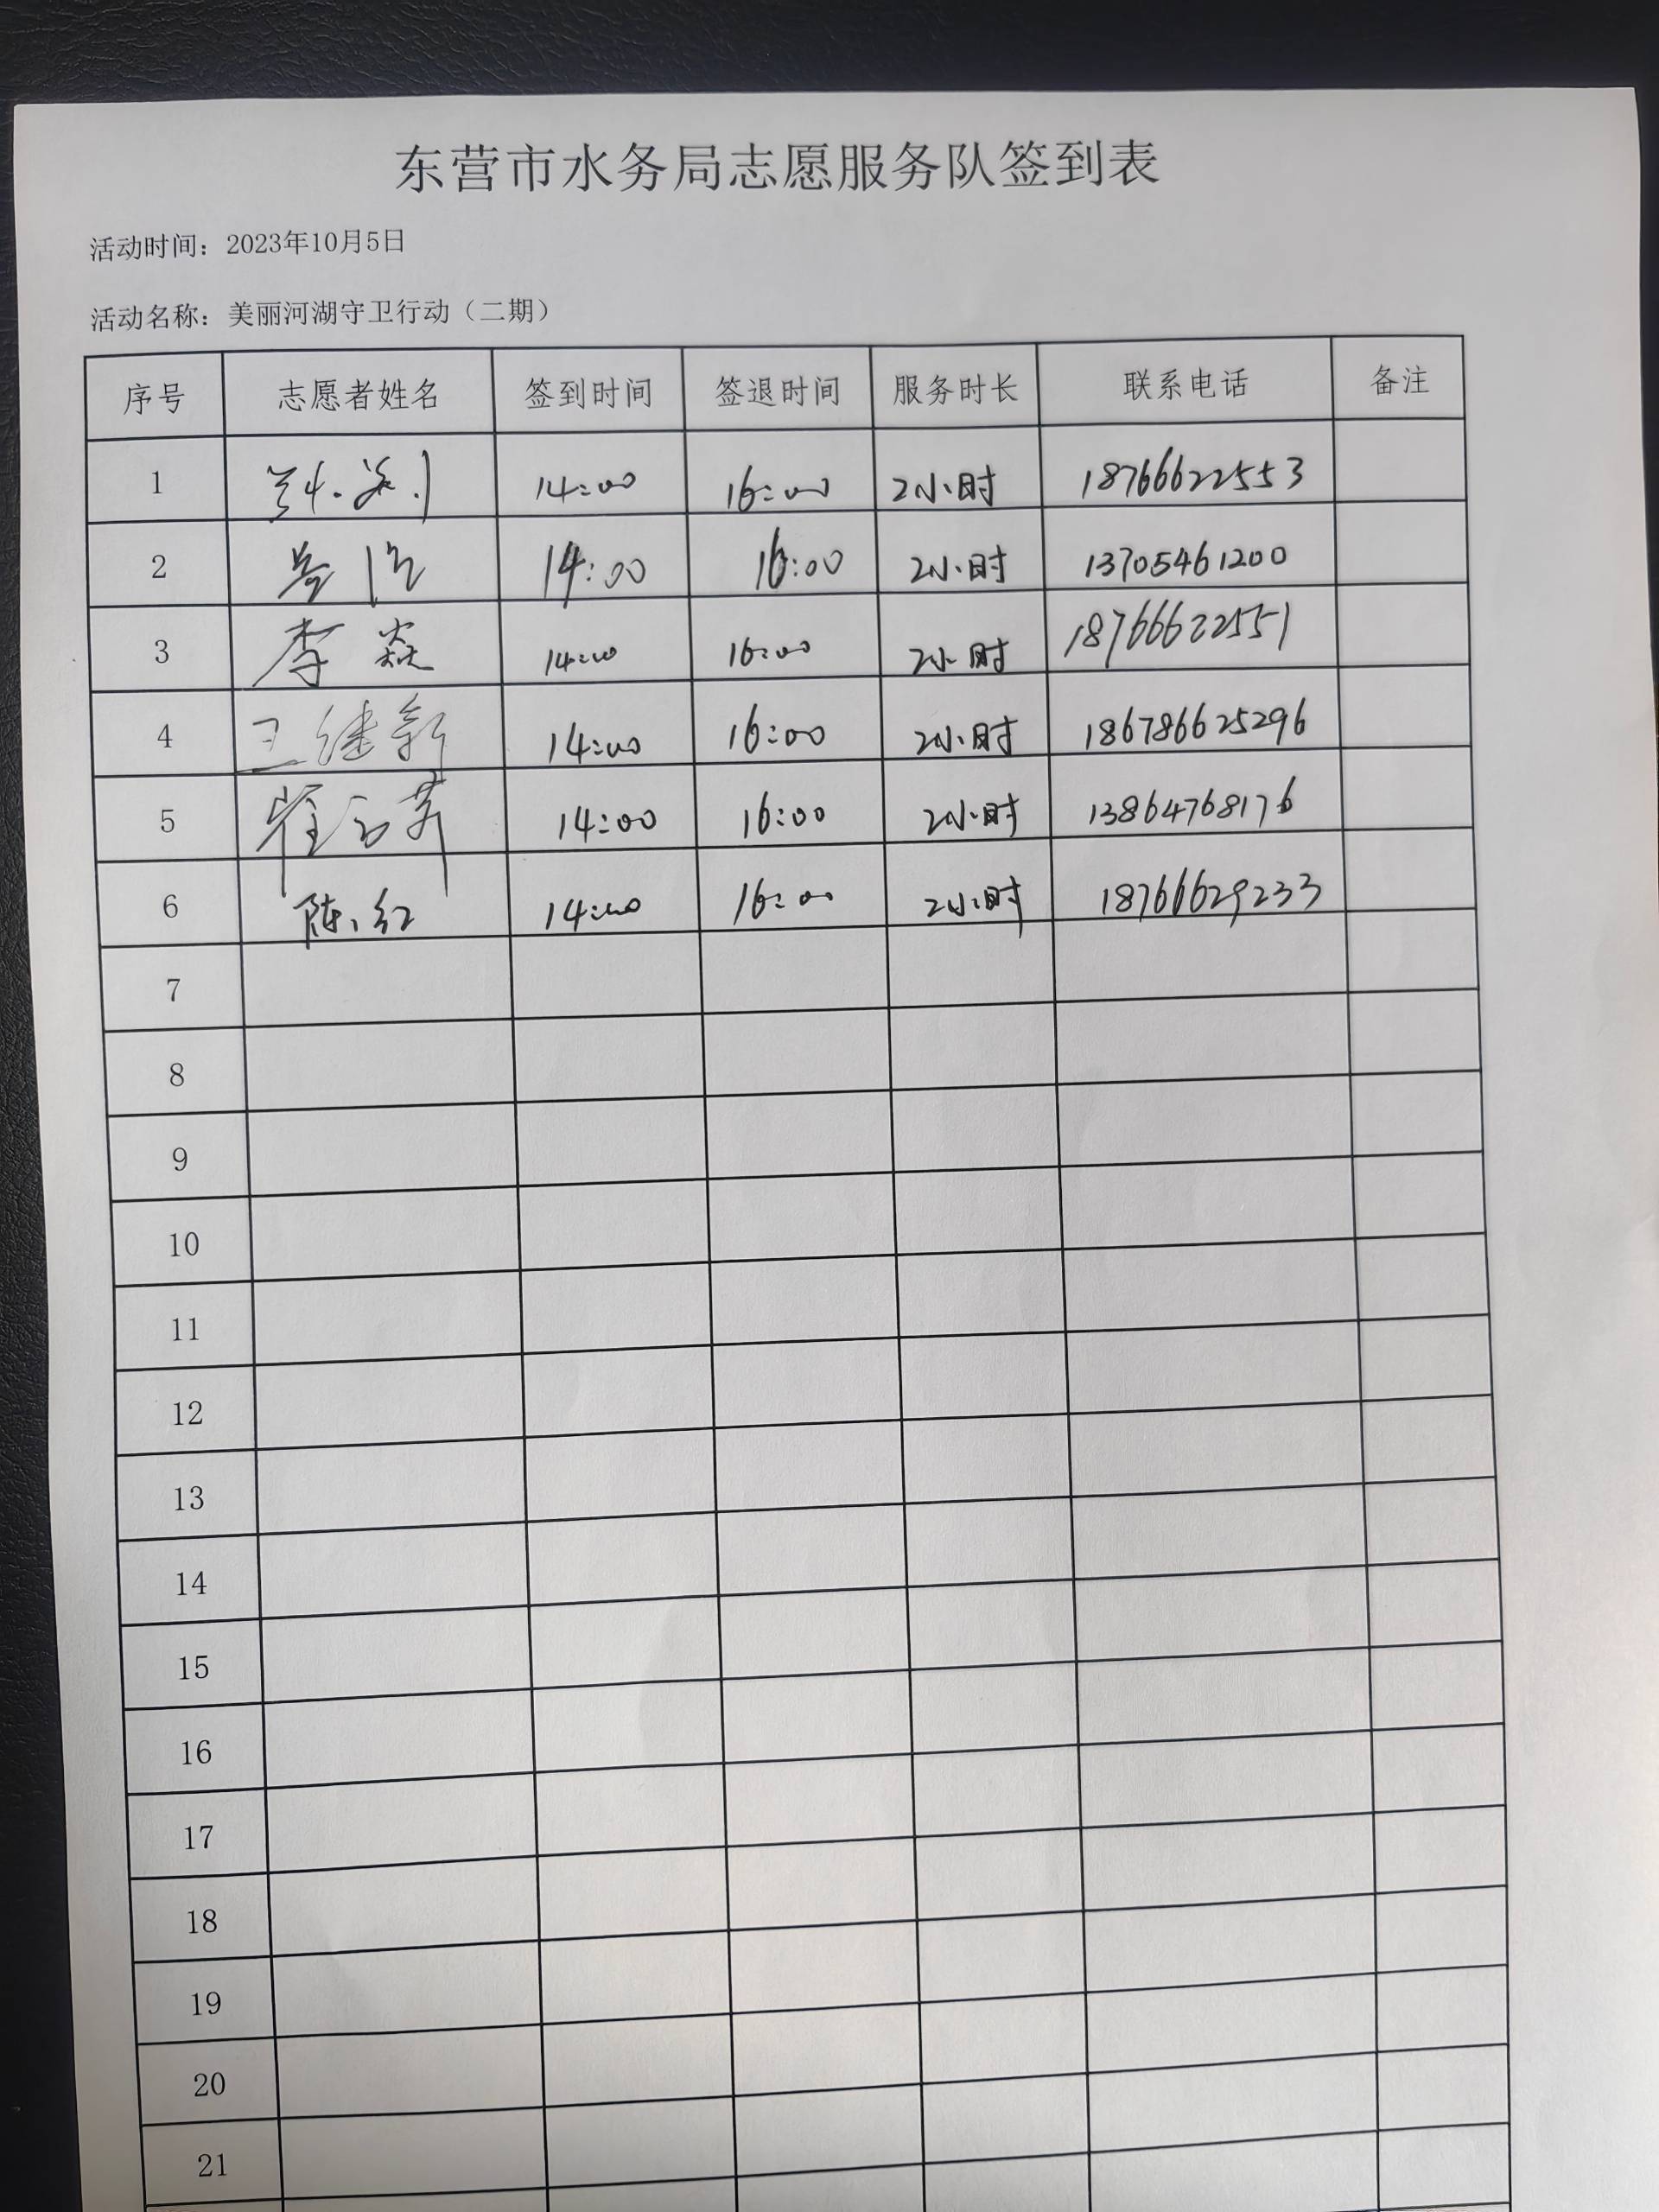 东营市水务局志愿服务队签到表
活动时间：2023年10月5日
活动名称：美丽河湖守卫行动（二期）
序号 志愿者姓名 签到时间 签退时间 服务时长 联系电话 备注
1 14:00 16:00 2小时 18766622553
2 14:00 16:00 2小时 13705461200
3 李焱 14:00 16:00 2小时 18766622551
4 王继新 14:00 16:00 2小时 186786625296
5 14:00 16:00 2小时 13864768176
6 陈红 14:00 16:00 2小时 18766629233
7
8
9
10
11
12
13
14
15
16
17
18
19
20
21